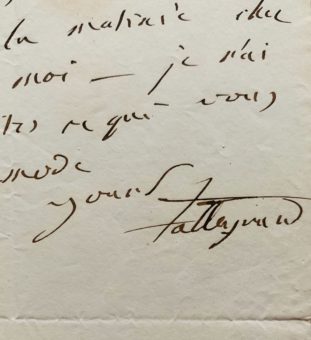 la matinée chez
moi — je n'ai
ce que vous
mode
yours
Talleyrand